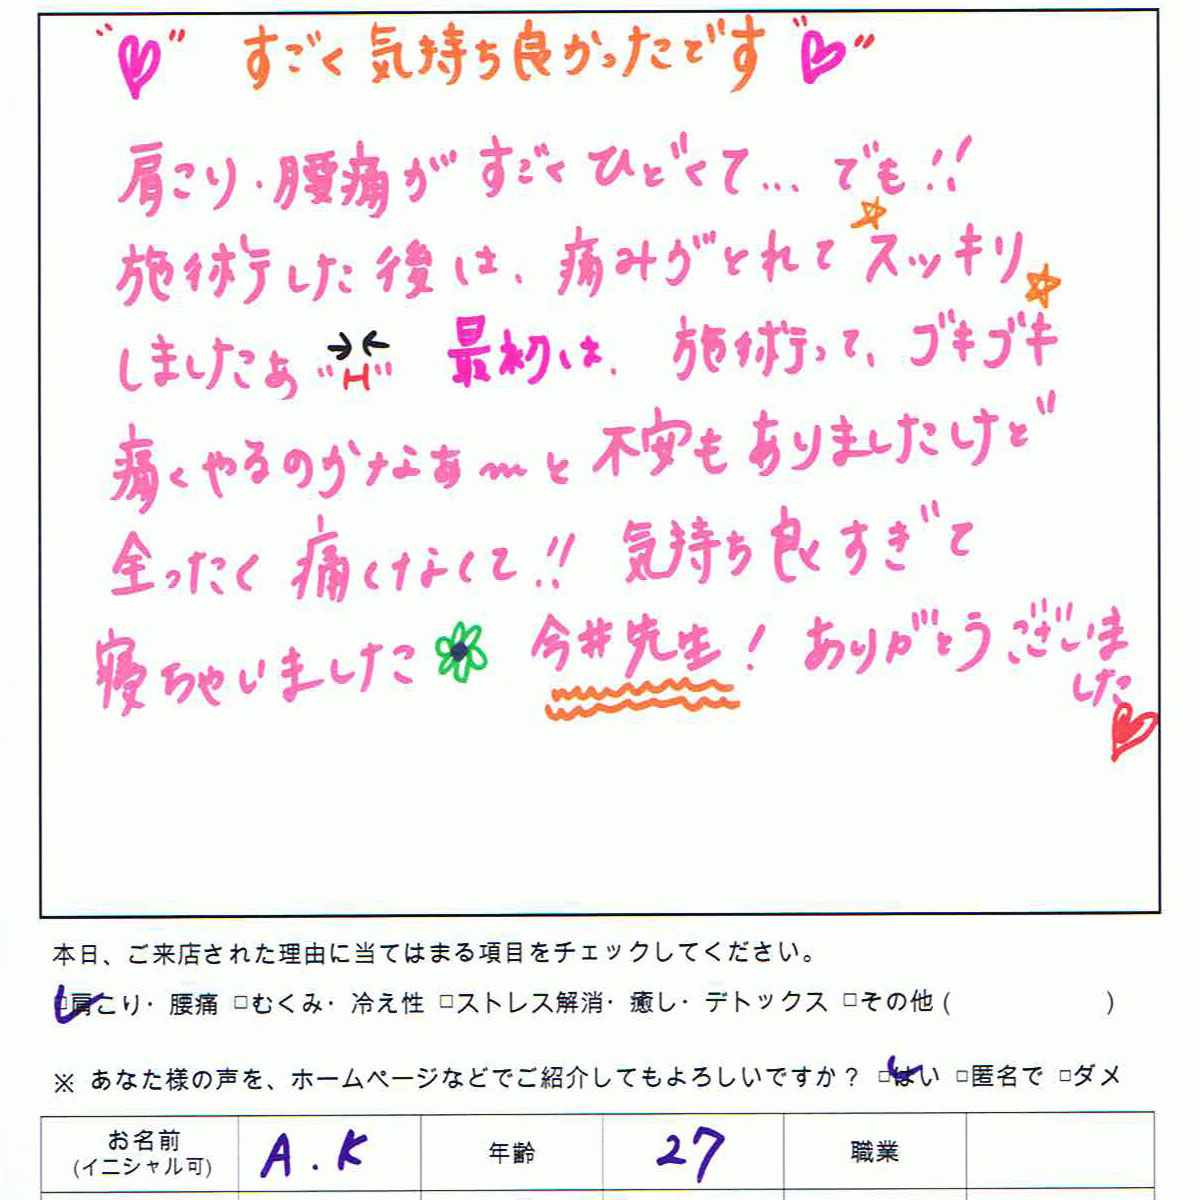 すごく気持ち良かったです
肩こり・腰痛がすごくひどくて...でも!!
施術した後は、痛みがとれてスッキリ
しましたぁ 最初は、施術って、ゴキゴキ
痛くやるのかなぁ〜と不安もありましたけど
全ったく痛くなくて!! 気持ち良すぎて
寝ちゃいました 今井先生! ありがとうございま
した
本日、ご来店された理由に当てはまる項目をチェックしてください。
□肩こり・腰痛 □むくみ・冷え性 □ストレス解消・癒し・デトックス □その他( )
※ あなた様の声を、ホームページなどでご紹介してもよろしいですか? □はい □匿名で □ダメ
お名前 A.K 年齢 27 職業
(イニシャル可)